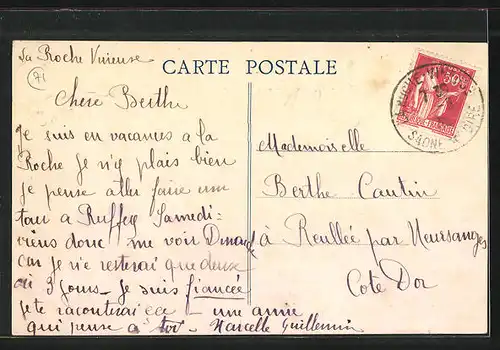 La Roche Vineuse
71
CARTE POSTALE
50c
SAONE ET LOIRE
Chère Berthe
Je suis en vacances a la
Roche Je n'y plais bien
je pense aller faire une
tour a Ruffey Samedi-
viens donc me voir Dimanche
car je n'e resterai que deux
ou 3 jours - Je suis fiancée
je te raconterai ça - une amie
qui pense à toi - Marcelle Guillemin
Mademoiselle
Berthe Cautin
à Reullée par Meursanges
Cote Dor